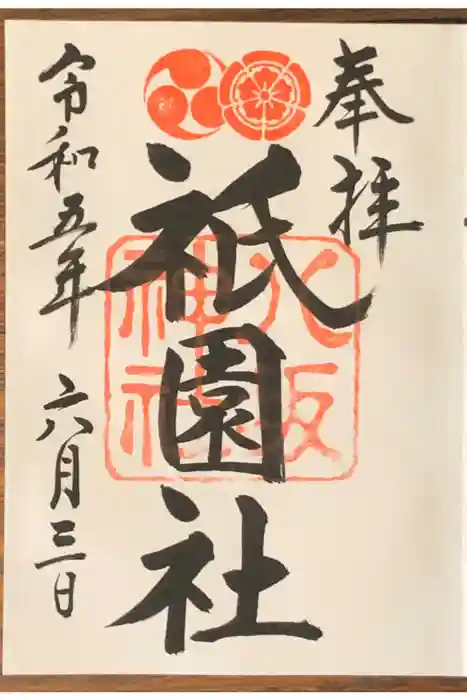 奉拝
祇園社
八坂
神社
令和五年 六月三日